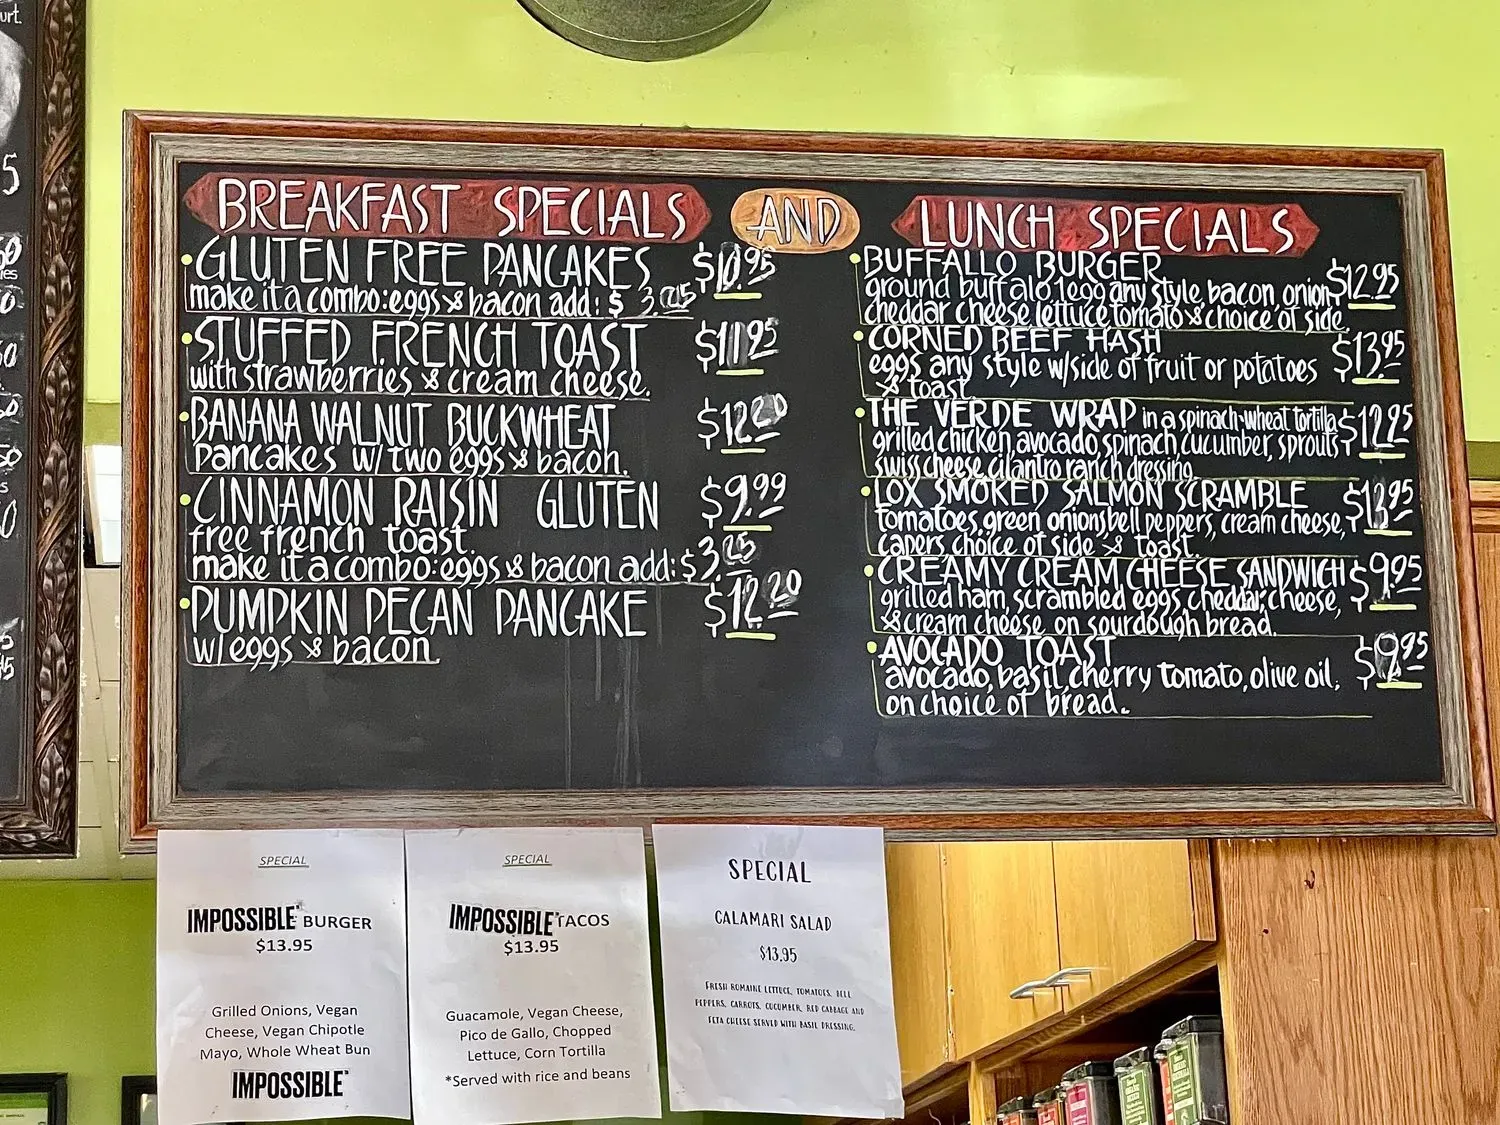 BREAKFAST SPECIALS
AND
LUNCH SPECIALS
GLUTEN FREE PANCAKES $10.95
make it a combo: eggs & bacon add: $ 3.25
STUFFED FRENCH TOAST $11.95
with strawberries & cream cheese.
BANANA WALNUT BUCKWHEAT $12.20
pancakes w/ two eggs & bacon.
CINNAMON RAISIN GLUTEN $9.99
free french toast.
make it a combo: eggs & bacon add: $3.25
PUMPKIN PECAN PANCAKE $12.20
w/eggs & bacon.
BUFFALLO BURGER $12.95
ground buffalo 1egg any style, bacon, onion,
cheddar cheese lettuce tomato & choice of side.
CORNED BEEF HASH $13.95
eggs any style w/side of fruit or potatoes
& toast.
THE VERDE WRAP in a spinach-wheat tortilla $12.95
grilled chicken, avocado, spinach, cucumber, sprouts
swiss cheese, cilantro ranch dressing.
LOX SMOKED SALMON SCRAMBLE $13.95
tomatoes, green onions, bell peppers, cream cheese,
capers, choice of side & toast.
CREAMY CREAM CHEESE SANDWICH $9.95
grilled ham, scrambled eggs, cheddar, cheese,
& cream cheese, on sourdough bread.
AVOCADO TOAST $9.95
avocado, basil, cherry tomato, olive oil,
on choice of bread.
SPECIAL
IMPOSSIBLE BURGER
$13.95
Grilled Onions, Vegan
Cheese, Vegan Chipotle
Mayo, Whole Wheat Bun
IMPOSSIBLE
SPECIAL
IMPOSSIBLE TACOS
$13.95
Guacamole, Vegan Cheese,
Pico de Gallo, Chopped
Lettuce, Corn Tortilla
*Served with rice and beans
SPECIAL
CALAMARI SALAD
$13.95
FRESH ROMAINE LETTUCE, TOMATOES, BELL
PEPPERS, CARROTS, CUCUMBER, RED CABBAGE AND
FETA CHEESE SERVED WITH BASIL DRESSING.